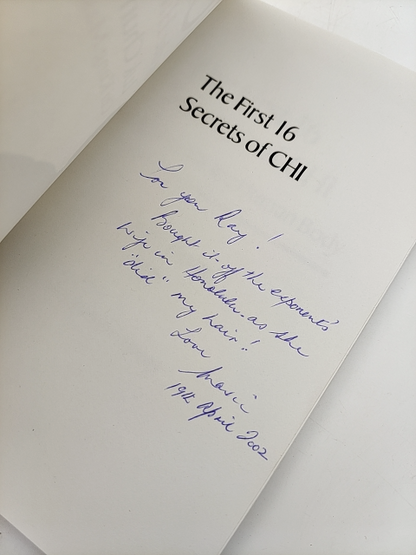 The First 16
Secrets of CHI
For you Ray!
Bought it off the exponents'
wife in Honolulu as she
"did" my hair!
Love
19th April 2002